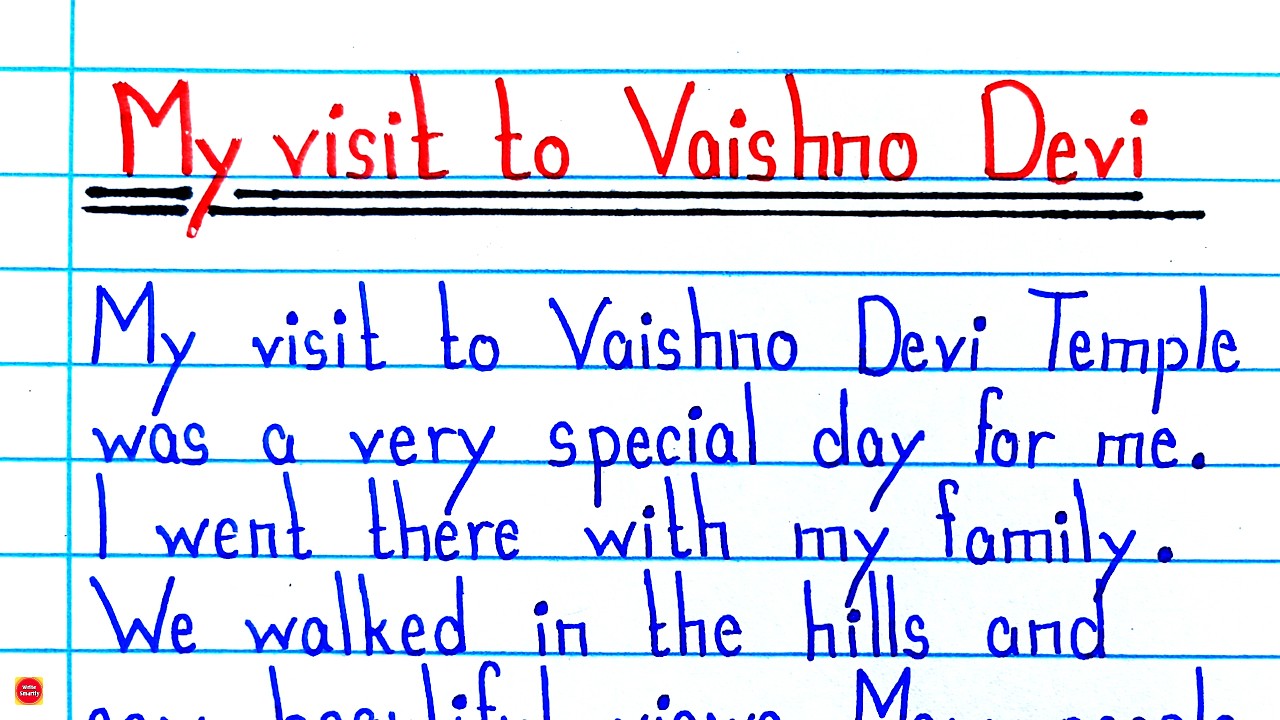 My visit to Vaishno Devi
My visit to Vaishno Devi Temple
was a very special day for me.
I went there with my family.
We walked in the hills and
saw beautiful views. Many people
Write Smartly